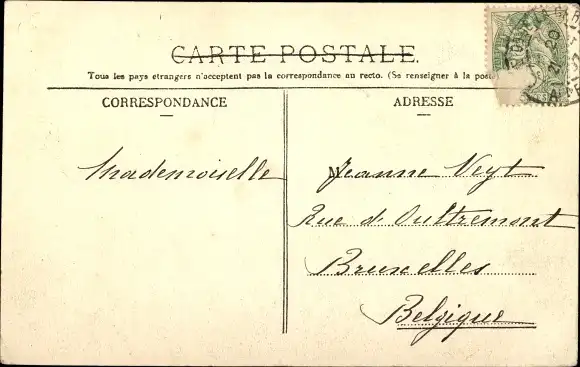 CARTE POSTALE.
Tous les pays etrangers n'acceptent pas la correspondance au recto. (Se renseigner à la poste)
CORRESPONDANCE
ADRESSE
Mademoiselle
Jeanne Veyt
Rue d'Oultremont
Bruxelles
Belgique